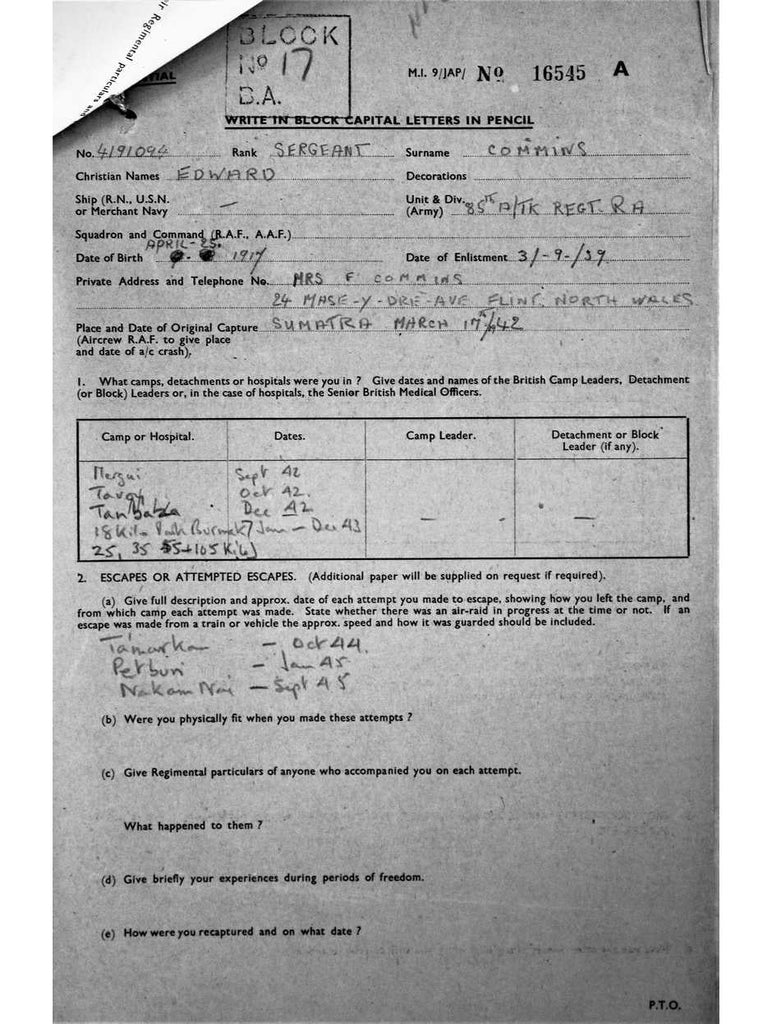 ir Regimental particulars and
TIAL
BLOCK
No 17
B.A.
M.I. 9/JAP/ No 16545 A
WRITE IN BLOCK CAPITAL LETTERS IN PENCIL
No. 4191094 Rank SERGEANT Surname COMMINS
Christian Names EDWARD Decorations
Ship (R.N., U.S.N. or Merchant Navy — Unit & Div. (Army) 85th A/TK REGT. RA
Squadron and Command (R.A.F., A.A.F.)
APRIL-25.
Date of Birth 1917 Date of Enlistment 3/-9-/39
Private Address and Telephone No. MRS F COMMINS
24 MASE-Y-DRE-AVE FLINT, NORTH WALES
Place and Date of Original Capture SUMATRA MARCH 17th/42
(Aircrew R.A.F. to give place
and date of a/c crash).
1. What camps, detachments or hospitals were you in ? Give dates and names of the British Camp Leaders, Detachment
(or Block) Leaders or, in the case of hospitals, the Senior British Medical Officers.
Camp or Hospital. Dates. Camp Leader. Detachment or Block Leader (if any).
Mergui Sept 42
Tavoy Oct 42.
Dec 42 — —
18 Kilo Jan — Dec 43
25, 35 55+105 Kilo
2. ESCAPES OR ATTEMPTED ESCAPES. (Additional paper will be supplied on request if required).
(a) Give full description and approx. date of each attempt you made to escape, showing how you left the camp, and
from which camp each attempt was made. State whether there was an air-raid in progress at the time or not. If an
escape was made from a train or vehicle the approx. speed and how it was guarded should be included.
Tamarkan — Oct 44.
Petburi — Jan 45
Nakom Nai — Sept 45
(b) Were you physically fit when you made these attempts ?
(c) Give Regimental particulars of anyone who accompanied you on each attempt.
What happened to them ?
(d) Give briefly your experiences during periods of freedom.
(e) How were you recaptured and on what date ?
P.T.O.